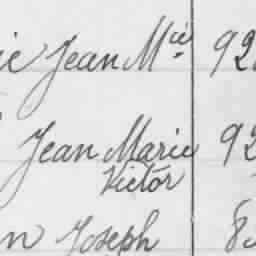 ie Jean Mie 92
Jean Marie 92
Victor
n Joseph 8